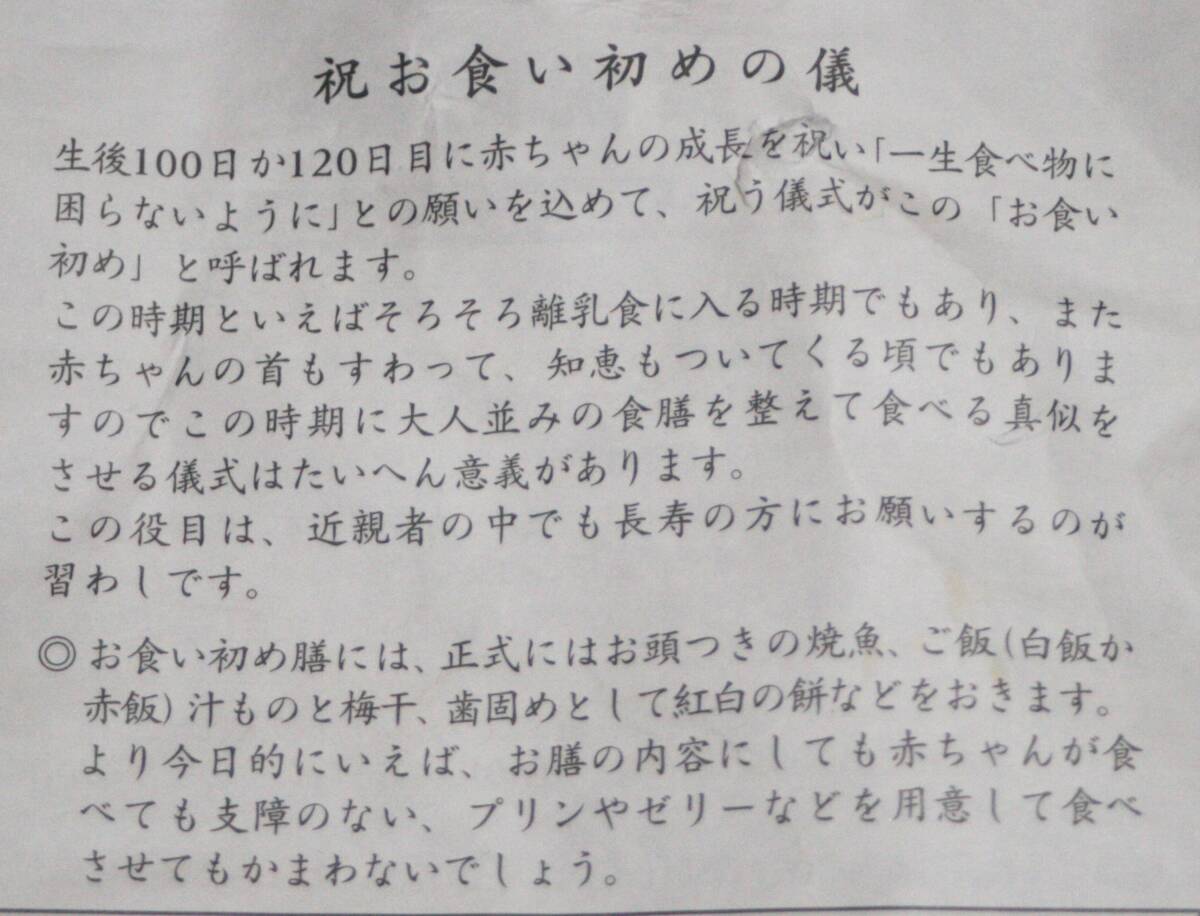 祝お食い初めの儀
生後100日か120日目に赤ちゃんの成長を祝い「一生食べ物に
困らないように」との願いを込めて、祝う儀式がこの「お食い
初め」と呼ばれます。
この時期といえばそろそろ離乳食に入る時期でもあり、また
赤ちゃんの首もすわって、知恵もついてくる頃でもありま
すのでこの時期に大人並みの食膳を整えて食べる真似を
させる儀式はたいへん意義があります。
この役目は、近親者の中でも長寿の方にお願いするのが
習わしです。
◎お食い初め膳には、正式にはお頭つきの焼魚、ご飯(白飯か
赤飯)汁ものと梅干、歯固めとして紅白の餅などをおきます。
より今日的にいえば、お膳の内容にしても赤ちゃんが食
べても支障のない、プリンやゼリーなどを用意して食べ
させてもかまわないでしょう。